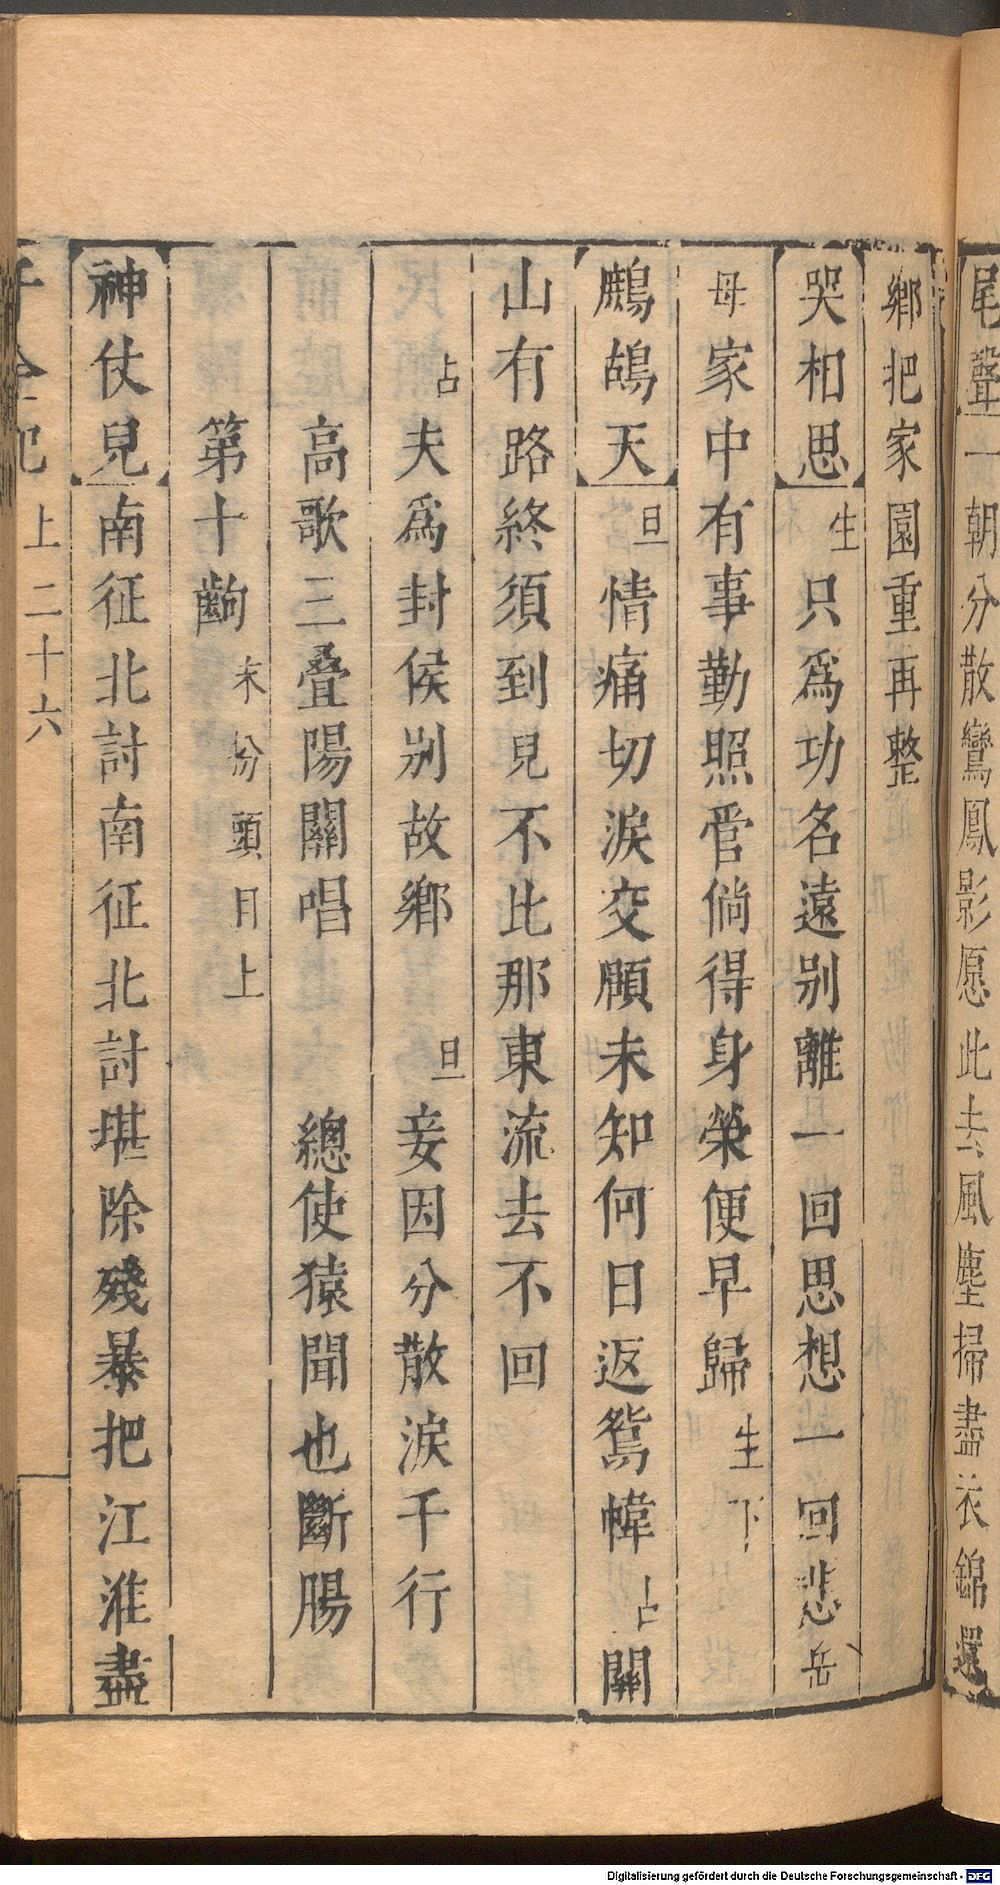 尾聲一朝分散鸞鳳影愿此去風塵掃盡衣錦還
鄉把家園重再整
哭相思生只爲功名遠别離一回思想一回悲岳
母家中有事勤照管倘得身榮便早歸生下
鷓鴣天旦情痛切淚交頤未知何日返鴛幃占關
山有路終須到見不比那東流去不回
占夫爲封侯别故鄉 旦妾因分散淚千行
高歌三叠陽關唱 總使猿聞也斷腸
第十齣末扮頭目上
神仗兒南征北討南征北討堪除殘暴把江淮盡
全記 上二十六
Digitalisierung gefördert durch die Deutsche Forschungsgemeinschaft - DFG